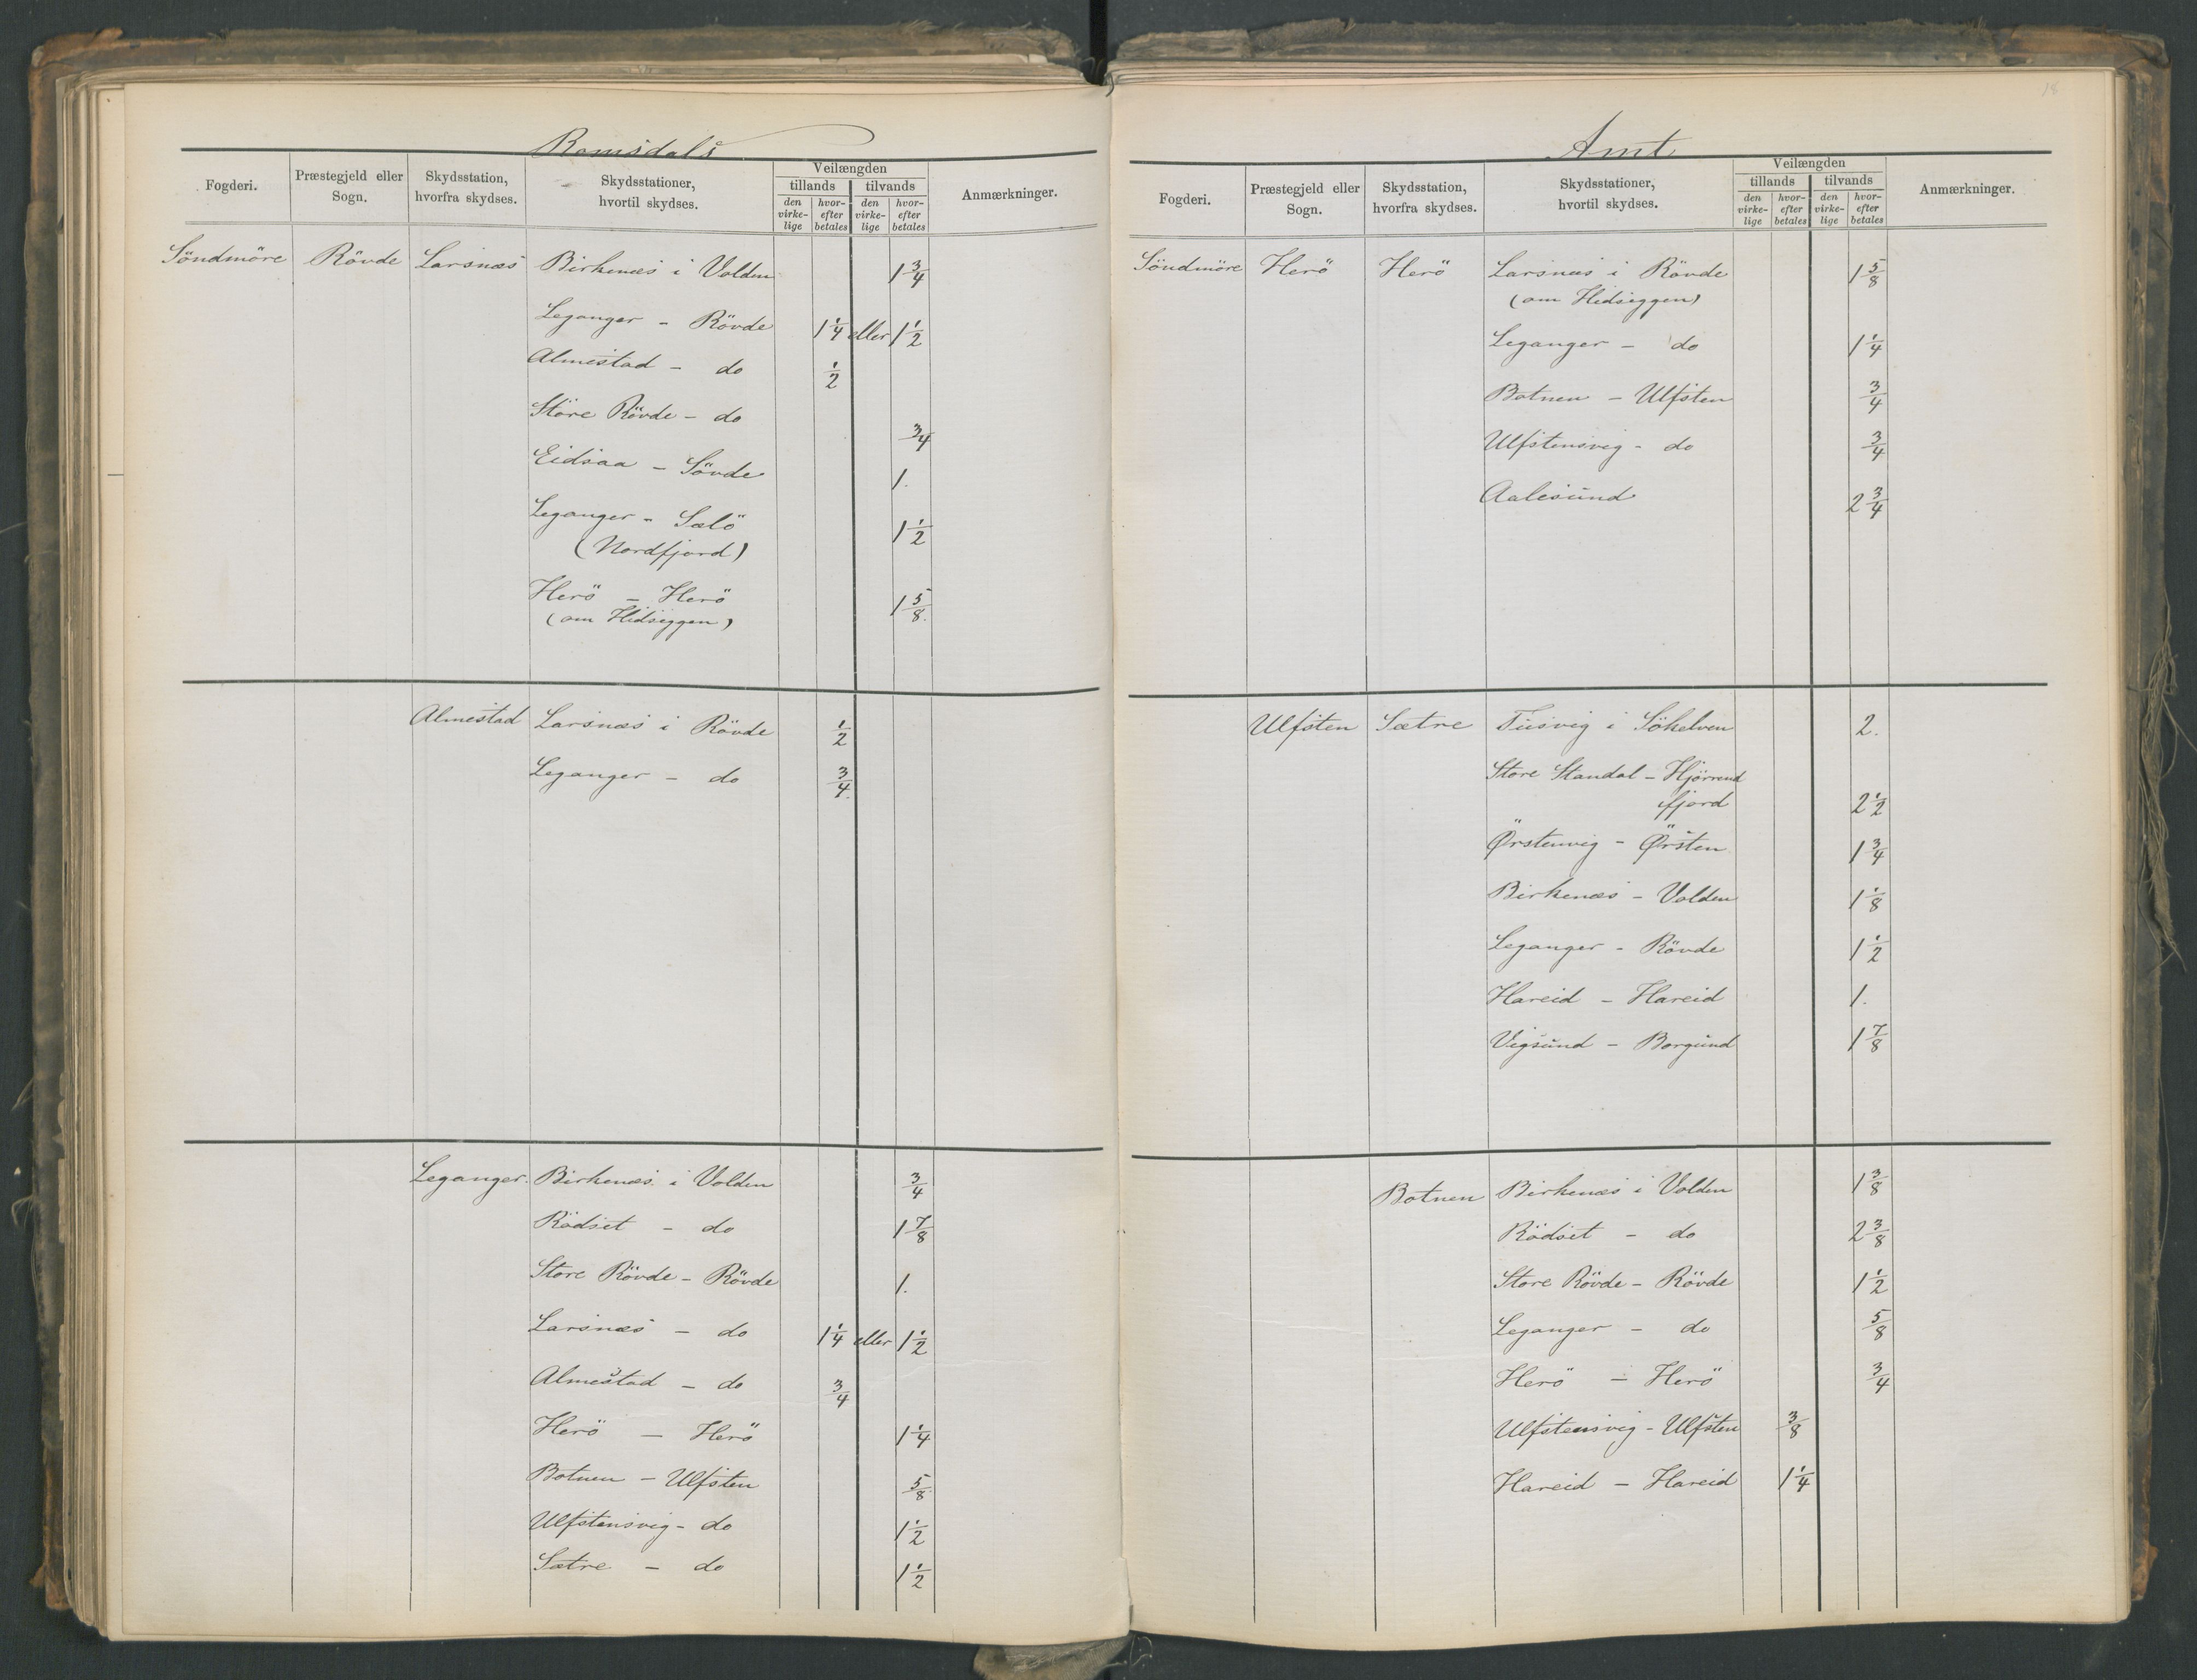 Romsdals
Fogderi. Præstegjeld eller Sogn. Skydsstation, hvorfra skydses. Skydsstationer, hvortil skydses. Veilængden tillands tilvands den virke-lige hvor-efter betales den virke-lige hvor-efter betales Anmærkninger.
Söndmöre Rövde Larsnæs Birkenæs i Volden 1 3/4
Leganger - Rövde 1 1/4 eller 1 1/2
Almestad - do 1/2
Store Rövde - do 3/4
Eidsaa - Sövde 1.
Leganger - Selö 1 1/2
(Nordfjord)
Herö - Herö 1 5/8.
(om Hidseggen)
Almestad Larsnæs i Rövde 1/2
Leganger - do 3/4.
Leganger. Birkenæs i Volden 3/4
Rödset - do 1 7/8
Store Rövde - Rövde 1.
Larsnæs - do 1 1/4 eller 1 1/2
Almestad - do 3/4
Herö - Herö 1 1/4
Botnen - Ulfsten 5/8.
Ulfstensvig - do 1 1/2
Sætre - do 1 1/2
Amt
18
Fogderi. Præstegjeld eller Sogn. Skydsstation, hvorfra skydses. Skydsstationer, hvortil skydses. Veilængden tillands tilvands den virke-lige hvor-efter betales den virke-lige hvor-efter betales Anmærkninger.
Söndmöre Herö Herö Larsnæs i Rövde 1 5/8
(om Hidseggen)
Leganger - do 1 1/4
Botnen - Ulfsten 3/4
Ulfstensvig - do 3/4
Aalesund 2 3/4
Ulfsten Sætre Tusvig i Sökelven 2.
Store Standal - Hjörrend
fjord 2 1/2
Ørstenvig - Ørsten 1 3/4
Birkenæs - Volden 1 1/8
Leganger - Rövde 1 1/2
Hareid - Hareid 1.
Vigsund - Borgund 1 7/8
Botnen Birkenæs i Volden 1 3/8
Rödset - do 2 3/8
Store Rövde - Rövde 1 1/2
Leganger - do 5/8
Herö - Herö 3/4
Ulfstensvig - Ulfsten 3/8
Hareid - Hareid 1 1/4